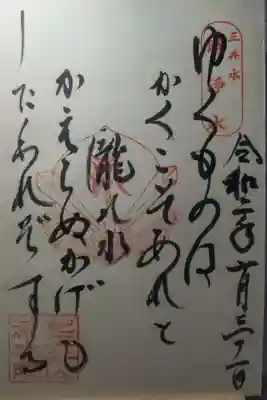 令和二年十月三十一日
ゆくものは
かくこそあれと
瀧の水
かえらぬかげも
したわれぞする